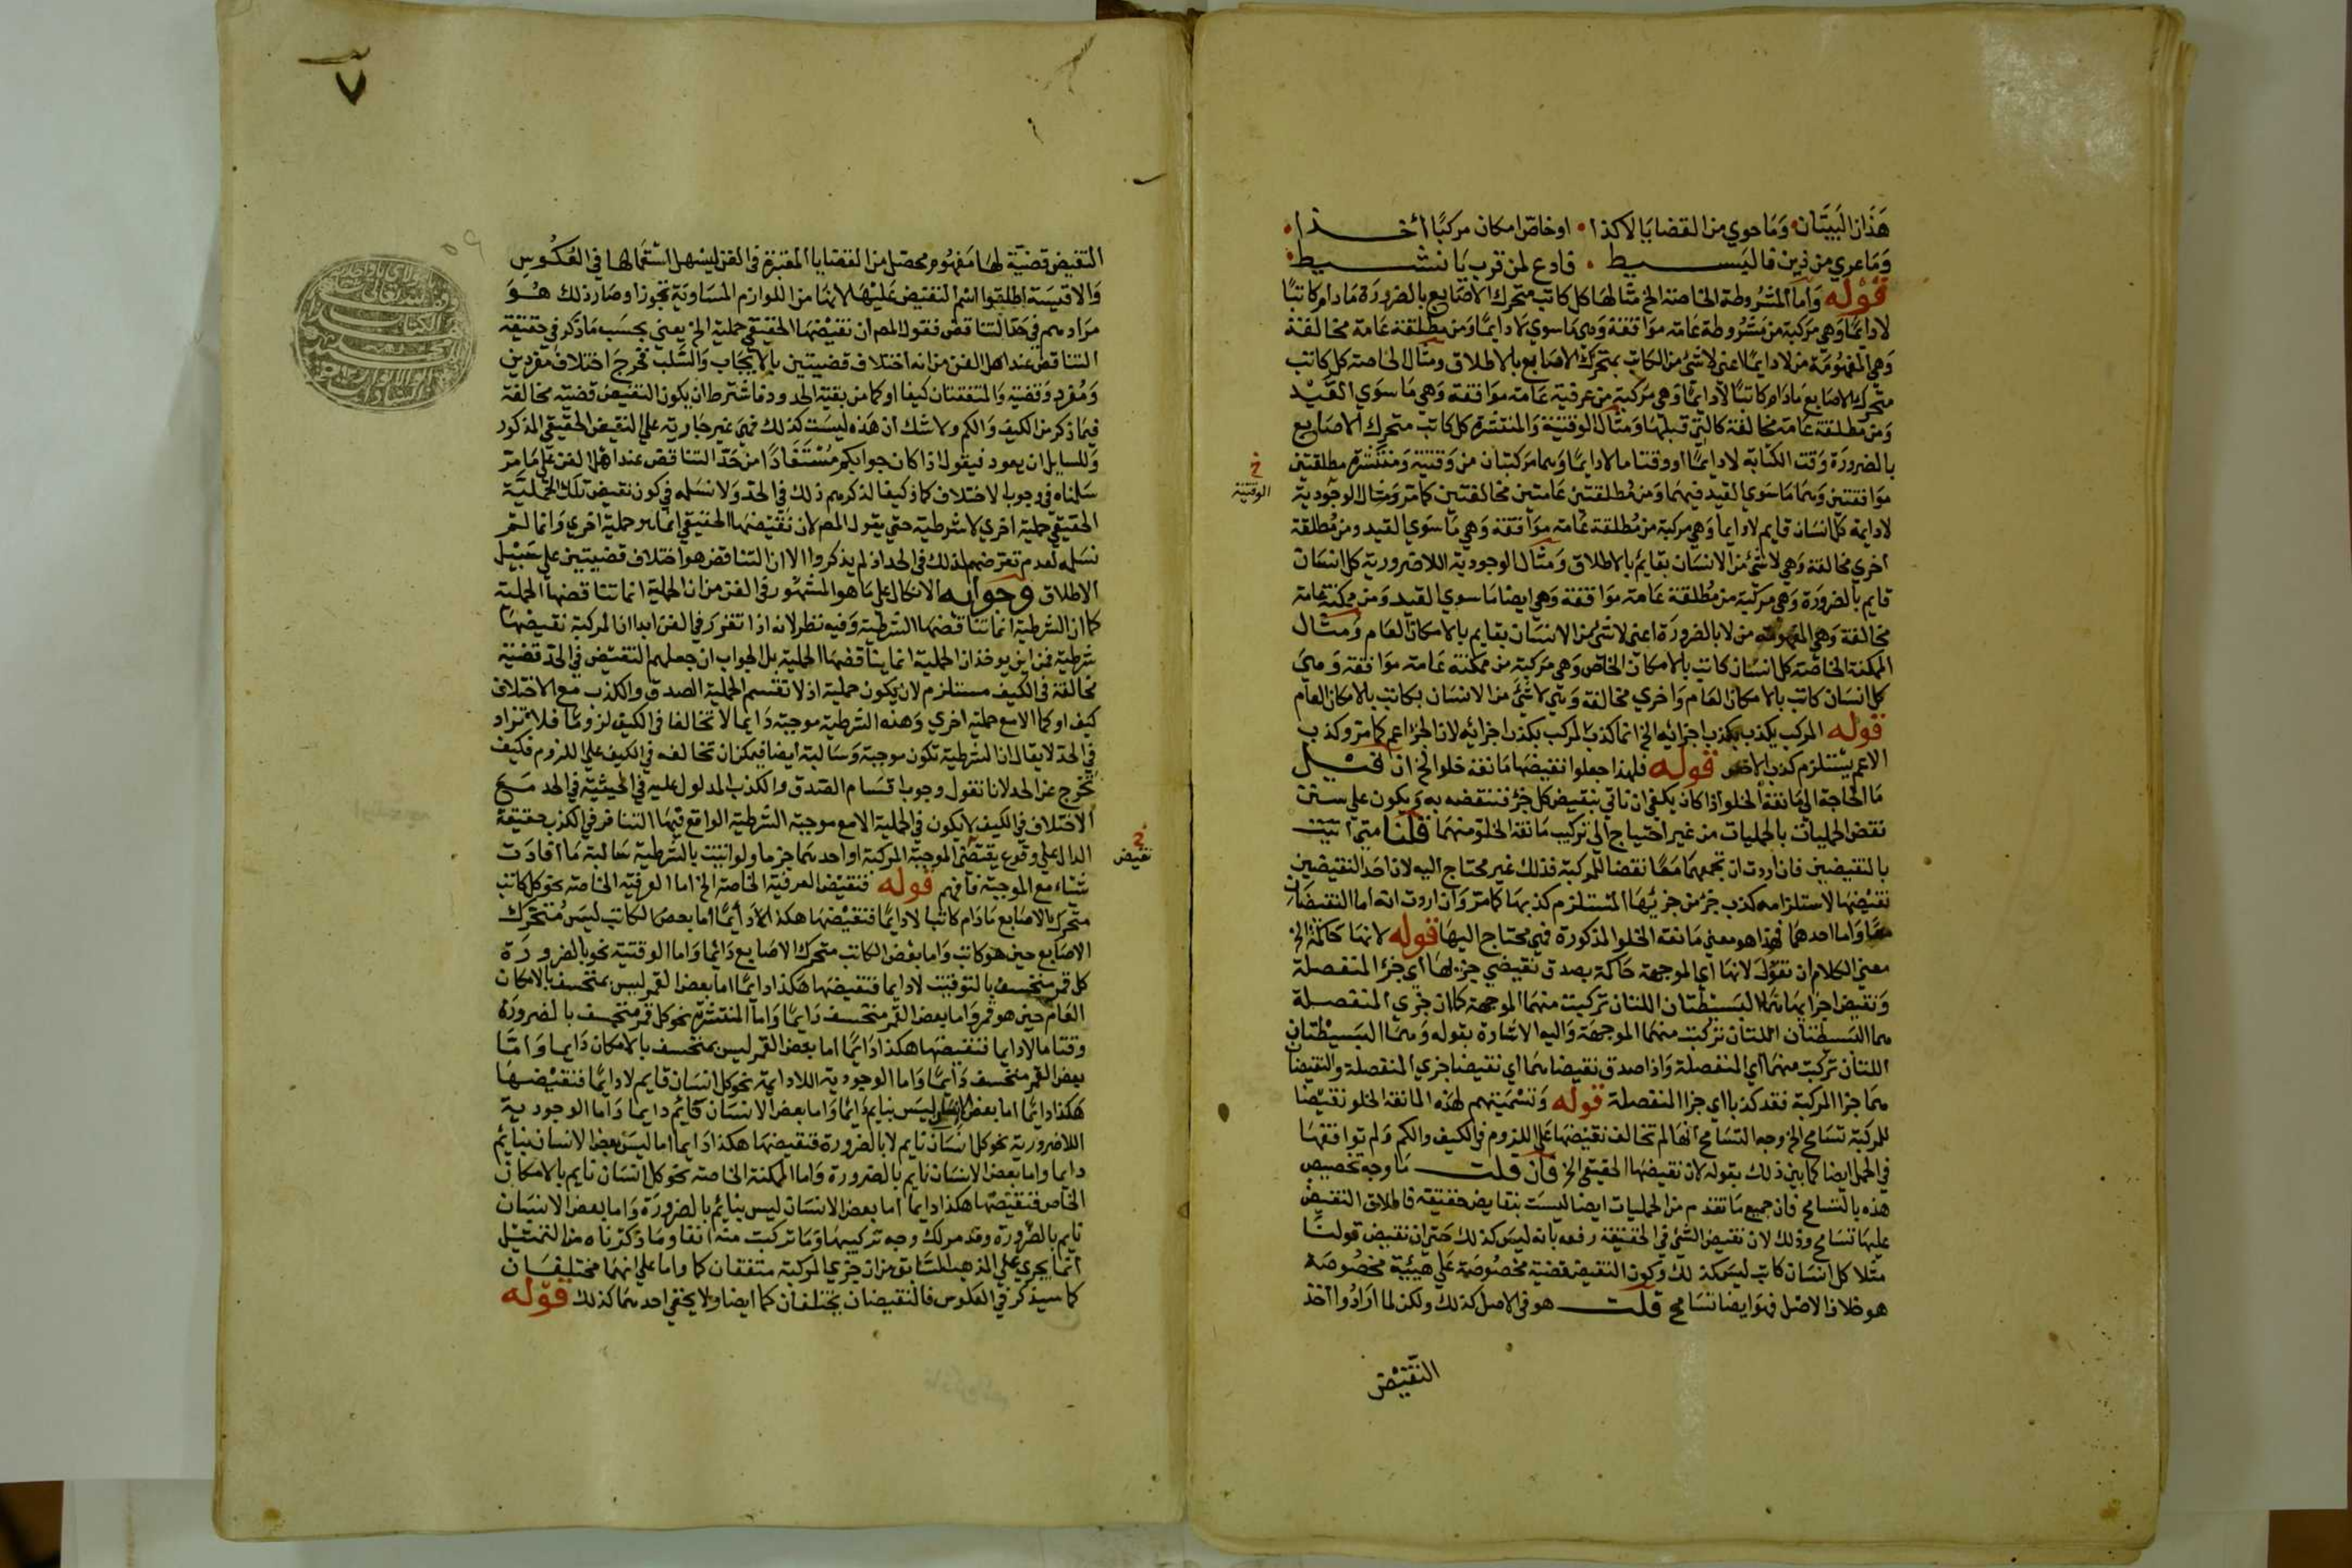 هذان البيتان وما حوي من القضايا لا كذا • او خاص امكان مركبا أخذا •
وما عري من ذين فالبسيط • فادع لمن قرب يا نشيط •
قوله واما المشروطة الخاصة الخ مثالها كل كاتب متحرك الاصابع بالضرورة مادام كاتبا
لا دايما وهي مركبة من مشروطة عامة موافقة وهي ما سوي لا دايما ومن مطلقة عامة مخالفة
وهي المفهومة من لا دايما اعني لا شئ من الكاتب بمتحرك الاصابع بالاطلاق ومثال الخاصة كل كاتب
متحرك الاصابع مادام كاتبا لا دايما وهي مركبة من عرفية عامة موافقة وهي ما سوي القيد
ومن مطلقة عامة مخالفة كالتي قبلها ومثال الوقتية والمنتشرة كل كاتب متحرك الاصابع
بالضرورة وقت الكتابة لا دايما او وقتا ما لا دايما وهما مركبتان من وقتية ومنتشرة مطلقتين
خ
الوقتية
موافقتين وهما ما سوي القيد فيهما ومن مطلقتين عامتين مخالفتين كما مر ومثال الوجودية
لا دايمة كل انسان قايم لا دايما وهي مركبة من مطلقة عامة موافقة وهي ما سوي القيد ومن مطلقة
أخري مخالفة وهي لا شئ من الانسان بقايم بالاطلاق ومثال الوجودية اللاضرورية كل انسان
قايم بالضرورة وهي مركبة من مطلقة عامة موافقة وهي ايضا ما سوي القيد ومن ممكنة عامة
مخالفة وهي المفهومة من لا بالضرورة اعني لا شئ من الانسان بقايم بالامكان العام ومثال
الممكنة الخاصة كل انسان كاتب بالامكان الخاص وهي مركبة من ممكنة عامة موافقة وهي
كل انسان كاتب بالامكان العام واخري مخالفة وهي لا شئ من الانسان بكاتب بالامكان العام
قوله المركب يكذب بكذب اجزائه الخ انما كذب المركب بكذب اجزائه لان الجزء اعم كما مر وكذب
الاعم يستلزم كذب الاخص قوله فلهذا جعلوا نقيضها مانعة خلو الخ ان قيل
ما الحاجة الي مانعة الخلو اذا كان يكفي ان ناتي بنقيض كل جزء فننقضه به ويكون علي سنن
نقض الحمليات بالحمليات من غير احتياج الي تركيب مانعة الخلو منهما قلنا متي اتيت
بالنقيضين فان اردت ان تجمعهما معا نقضا للمركبة فذلك غير محتاج اليه لان احد النقيضين
نقيضها لاستلزامه كذب جزء من جزئيها المستلزم كذبها كما مر وان اردت انه اما النقيضان
معا واما احدهما فهذا هو معني مانعة الخلو المذكورة فهي محتاج اليها قوله لانها حاكمة الخ
معني الكلام ان تقول لانها اي الموجهة حاكمة بصدق نقيضي جزءيها اي جزء المنفصلة
ونقيض اجزائها هما البسيطتان اللتان تركبت منهما الموجهة كما ان جزءي المنفصلة
هما البسيطتان اللتان تركبت منهما الموجهة واليه الاشارة بقوله وهما البسيطتان
اللتان تركبت منهما اي المنفصلة واذا صدق نقيضاهما اي نقيضا جزءي المنفصلة والنقيضان
هما جزءا المركبة فقد كذبا اي جزءا المنفصلة قوله وتسميتهم لهذه المانعة الخلو نقيضا
للمركبة تسامح الخ وجه التسامح انها لم تخالف نقيضها علي اللزوم في الكيف والكم ولم توافقها
في الحمل ايضا كما بين ذلك بقوله لان نقيضها الحقيقي الخ فان قلت ما وجه تخصيص
هذه بالتسامح فان جميع ما تقدم من الحمليات ايضا ليست بنقايض حقيقة فاطلاق النقيض
عليها تسامح وذلك لان نقيض الشئ في الحقيقة رفعه بانه ليس كذلك حتي ان نقيض قولنا
مثلا كل انسان كاتب ليس كذلك وكون النقيض قضية مخصوصة علي هيئية مخصوصة
هو خلاف الاصل فهو ايضا تسامح قلت هو في الاصل كذلك ولكن لما ارادوا اخذ
النقيض
٧
٥٩
النقيض قضية لها مفهوم محصل من القضايا المعتبرة في الفن ليسهل استعمالها في العكوس
والاقيسة اطلقوا اسم النقيض عليها لانها من اللوازم المساوية تجوزا وصار ذلك هو
مرادهم في حد التناقض فقول المص ان نقيضها الحقيقي حملية الخ يعني بحسب ما ذكر في حقيقة
التناقض عند اهل الفن من انه اختلاف قضيتين بالايجاب والسلب فخرج اختلاف مفردين
ومفرد وقضية والمتفقتان كيفا او كما من بقية الحدود فاشترط ان يكون النقيض قضية مخالفة
فيما ذكر من الكيف والكم ولا شك ان هذه ليست كذلك فهي غير جارية علي النقيض الحقيقي المذكور
وللسايل ان يعود فيقول اذا كان جوابكم مستفادا من حد التناقض عند اهل الفن علي ما مر
سلمناه في وجوب الاختلاف كما وكيفا لذكرهم ذلك في الحد ولا نسلمه في كون نقيض تلك الحملية
الحقيقي حملية اخري لا شرطية حتي يقول المص لان نقيضها الحقيقي انما هو حملية اخري وانما لم
نسلمه لعدم تعرضهم لذلك في الحد اذ لم يذكروا الا ان التناقض هو اختلاف قضيتين علي سبيل
الاطلاق وجوابه الاتكال علي ما هو المشهور في الفن من ان الحملية انما تناقضها الحملية
كما ان الشرطية انما تناقضها الشرطية وفيه نظر لانه اذا تقرر في الفن ابدا ان المركبة نقيضها
شرطية فمن اين يوخذ ان الحملية انما يناقضها الحملية بل الجواب ان جعلهم النقيض في الحد قضية
مخالفة في الكيف مستلزم لان يكون حملية اذ لا تقتسم الحملية الصدق والكذب مع الاختلاف
كيف او كما الا مع حملية اخري وهذه الشرطية موجبة دايما لا تخالفا في الكيف لزوما فلا تراد
في الحد لا يقال ان الشرطية تكون موجبة وسالبة ايضا فيمكن ان تخالفه في الكيف علي اللزوم فكيف
تخرج عن الحد لانا نقول وجوب اقتسام الصدق والكذب المدلول عليه في الحيثية في الحد مع
الاختلاف في الكيف لا يكون في الحملية الا مع موجبة الشرطية الواقع فيها التنافر في الكذب حقيقة
الدال علي وقوع نقيضي الموجبة المركبة او احدهما جزما ولو اتيت بالشرطية سالبة ما افادت
خ
نقيض
شيئا مع الموجبة فافهم قوله فنقيض العرفية الخاصة الخ اما العرفية الخاصة نحو كل كاتب
متحرك الاصابع مادام كاتبا لا دايما فنقيضها هكذا دايما اما بعض الكاتب ليس متحرك
الاصابع حين هو كاتب واما بعض الكاتب متحرك الاصابع دائما واما الوقتية نحو بالضرورة
كل قمر منخسف بالتوقيت لا دايما فنقيضها هكذا دايما اما بعض القمر ليس بمنخسف بالامكان
العام حين هو قمر واما بعض القمر منخسف دايما واما المنتشرة نحو كل قمر منخسف بالضرورة
وقتا ما لا دايما فنقيضها هكذا دايما اما بعض القمر ليس بمنخسف بالامكان دايما واما
بعض القمر منخسف دايما واما الوجودية اللادايمة نحو كل انسان قايم لا دايما فنقيضها
هكذا دايما اما بعض الانسان ليس بنايم دائما واما بعض الانسان قائم دايما واما الوجودية
اللاضرورية نحو كل انسان نايم لا بالضرورة فنقيضها هكذا دايما اما ليس بعض الانسان بنايم
دايما واما بعض الانسان نايم بالضرورة واما الممكنة الخاصة نحو كل انسان نايم بالامكان
الخاص فنقيضها هكذا دايما اما بعض الانسان ليس بنائم بالضرورة واما بعض الانسان
نايم بالضرورة وقد مر لك وجه تركيبها وما تركبت منه انفا وما ذكرناه من التمثيل
انما يجري علي المذهب السابق من ان جزءي المركبة متفقان كما واما علي انهما مختلفان
كما سيذكر في العكوس فالنقيضان يختلفان كما ايضا ولا يخفي احدهما كذلك قوله